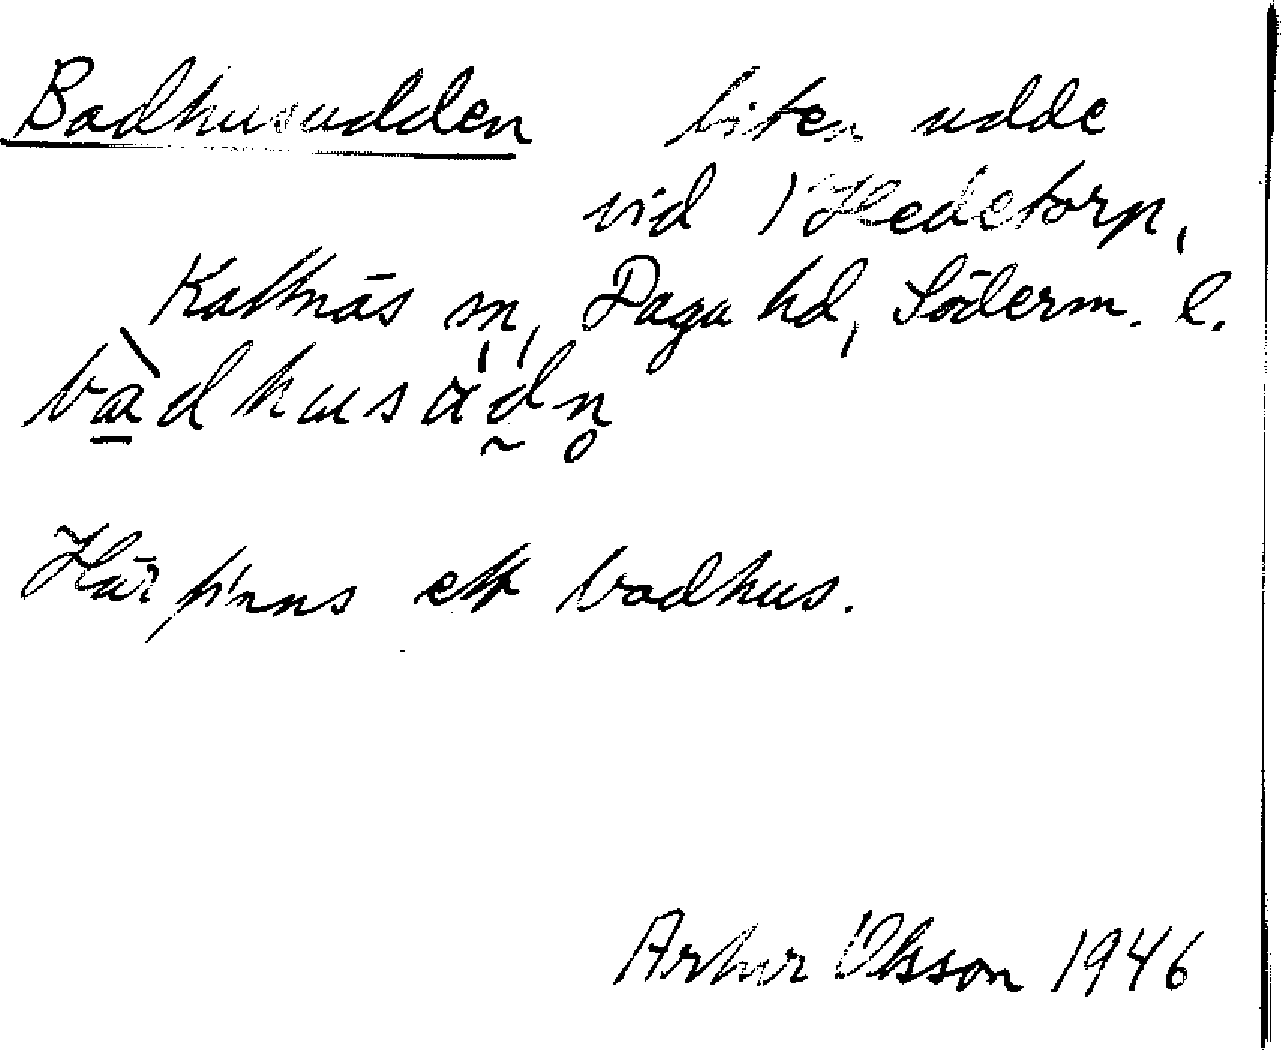 Badhusudden liten udde
vid 1 Hedetorp,
Kattnäs sn, Daga hd, Söderm. l.
bàdhusádn̥
Här finns ett badhus.
Artur Olsson 1946